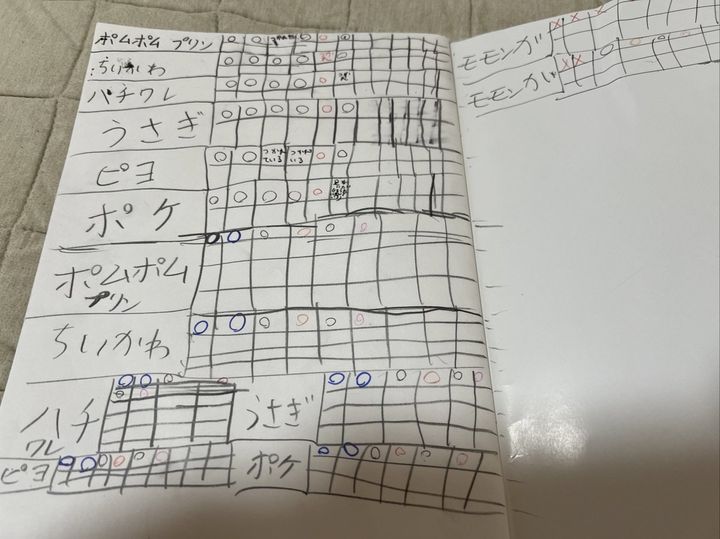 ポムポム プリン
ちいかわ
ハチワレ
うさぎ
ピヨ
ポケ
ポムポム
プリン
ちいかわ
ハチ
ワレ
うさぎ
ピヨ
ポケ
モモンガ
モモンガ